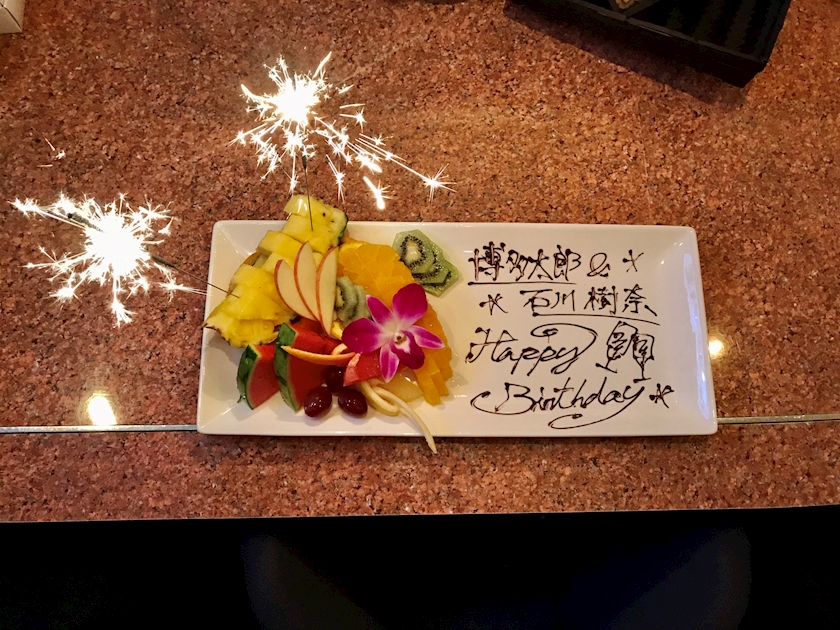 博多太郎 &
石川 樹奈
Happy
Birthday